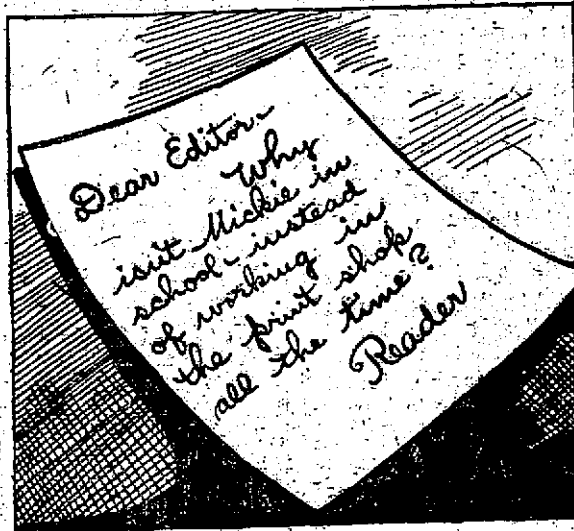 Dear Editor-
Why
isn't Mickie in
school - instead
of working in
the print shop
all the time?
Reader